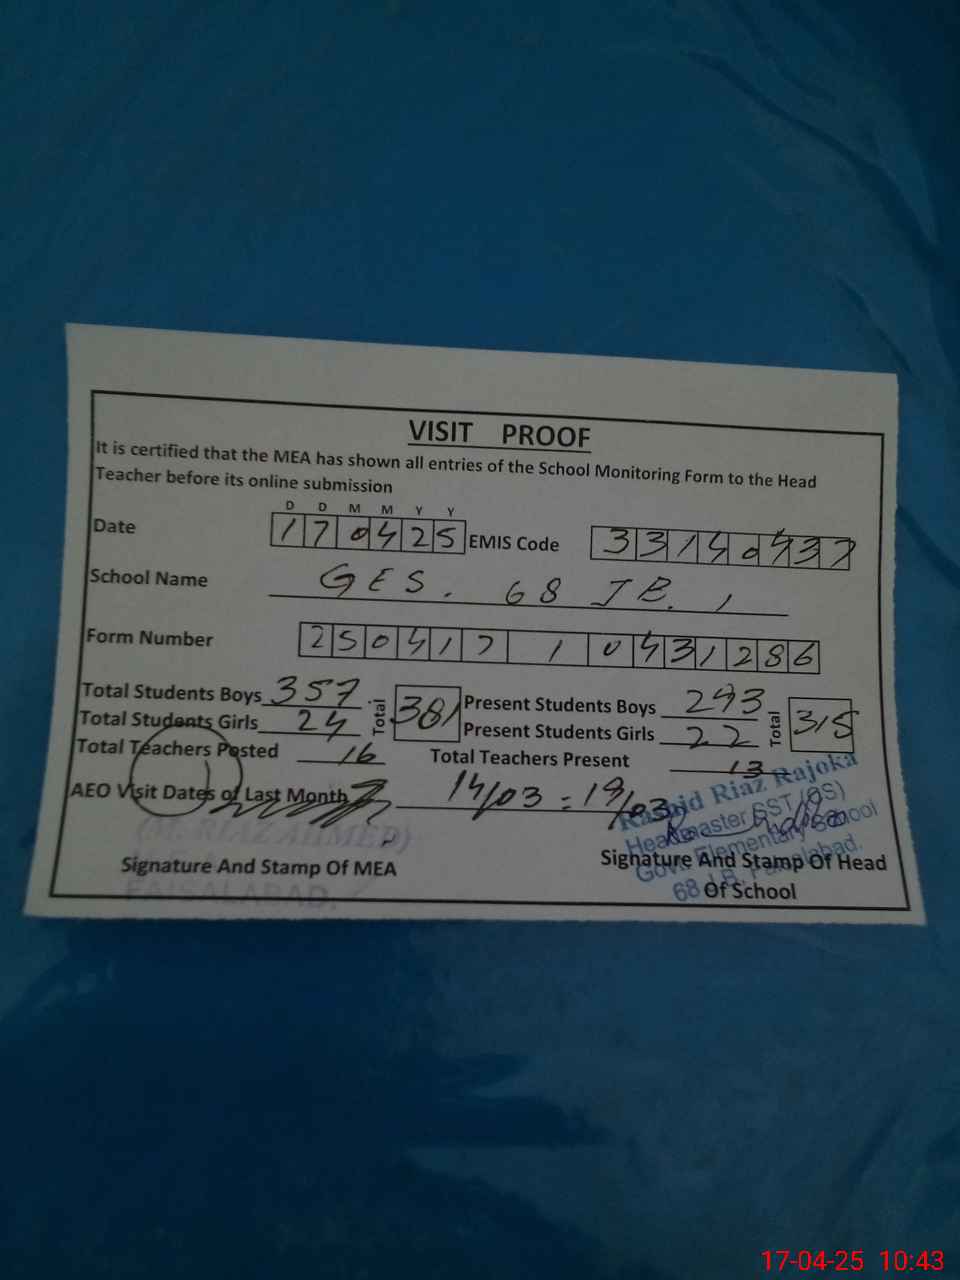 VISIT PROOF
It is certified that the MEA has shown all entries of the School Monitoring Form to the Head
Teacher before its online submission
D D M M Y Y
Date 170425 EMIS Code 33140437
School Name GES. 68 JB.
Form Number 250417 1 0431286
Total Students Boys 357 Total 381 Present Students Boys 293 Total 315
Total Students Girls 24 Present Students Girls 22
Total Teachers Posted 16 Total Teachers Present 13
AEO Visit Dates of Last Month 14/03 = 19/03
(M. RIAZ AHMED)
FAISALABAD.
Signature And Stamp Of MEA
Rashid Riaz Rajoka
Headmaster SST (OS)
Govt. Elementary School
68 J.B. Faisalabad.
Signature And Stamp Of Head
Of School
17-04-25 10:43